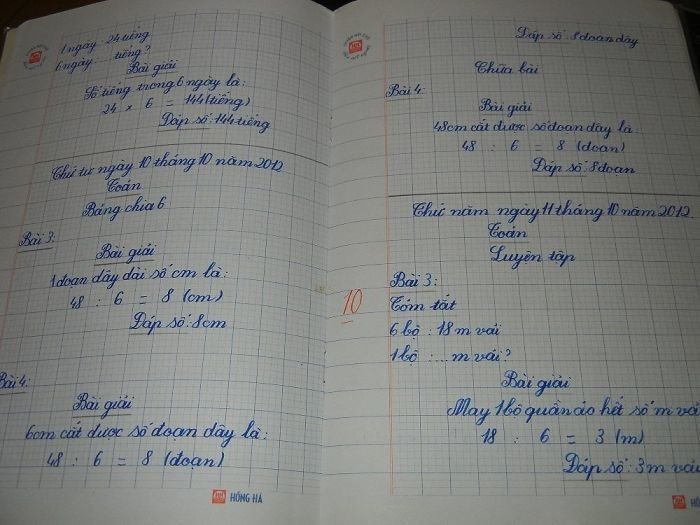 1 ngày 24 tiếng
6 ngày: ... tiếng?
Bài giải
Số tiếng trong 6 ngày là:
24 × 6 = 144 (tiếng)
Đáp số: 144 tiếng
Thứ tư ngày 10 tháng 10 năm 2012
Toán
Bảng chia 6
Bài 3:
Bài giải
1 đoạn dây dài số cm là:
48 : 6 = 8 (cm)
Đáp số: 8cm
Bài 4:
Bài giải
6cm cắt được số đoạn dây là:
48 : 6 = 8 (đoạn)
HỒNG HÀ
Đáp số: 8 đoạn dây
Chữa bài
Bài 4:
Bài giải
48cm cắt được số đoạn dây là:
48 : 6 = 8 (đoạn)
Đáp số: 8 đoạn
Thứ năm ngày 11 tháng 10 năm 2012.
Toán
Luyện tập
10
Bài 3:
Tóm tắt
6 bộ : 18 m vải
1 bộ : ... m vải?
Bài giải
May 1 bộ quần áo hết số m vải
18 : 6 = 3 (m)
Đáp số: 3m vải